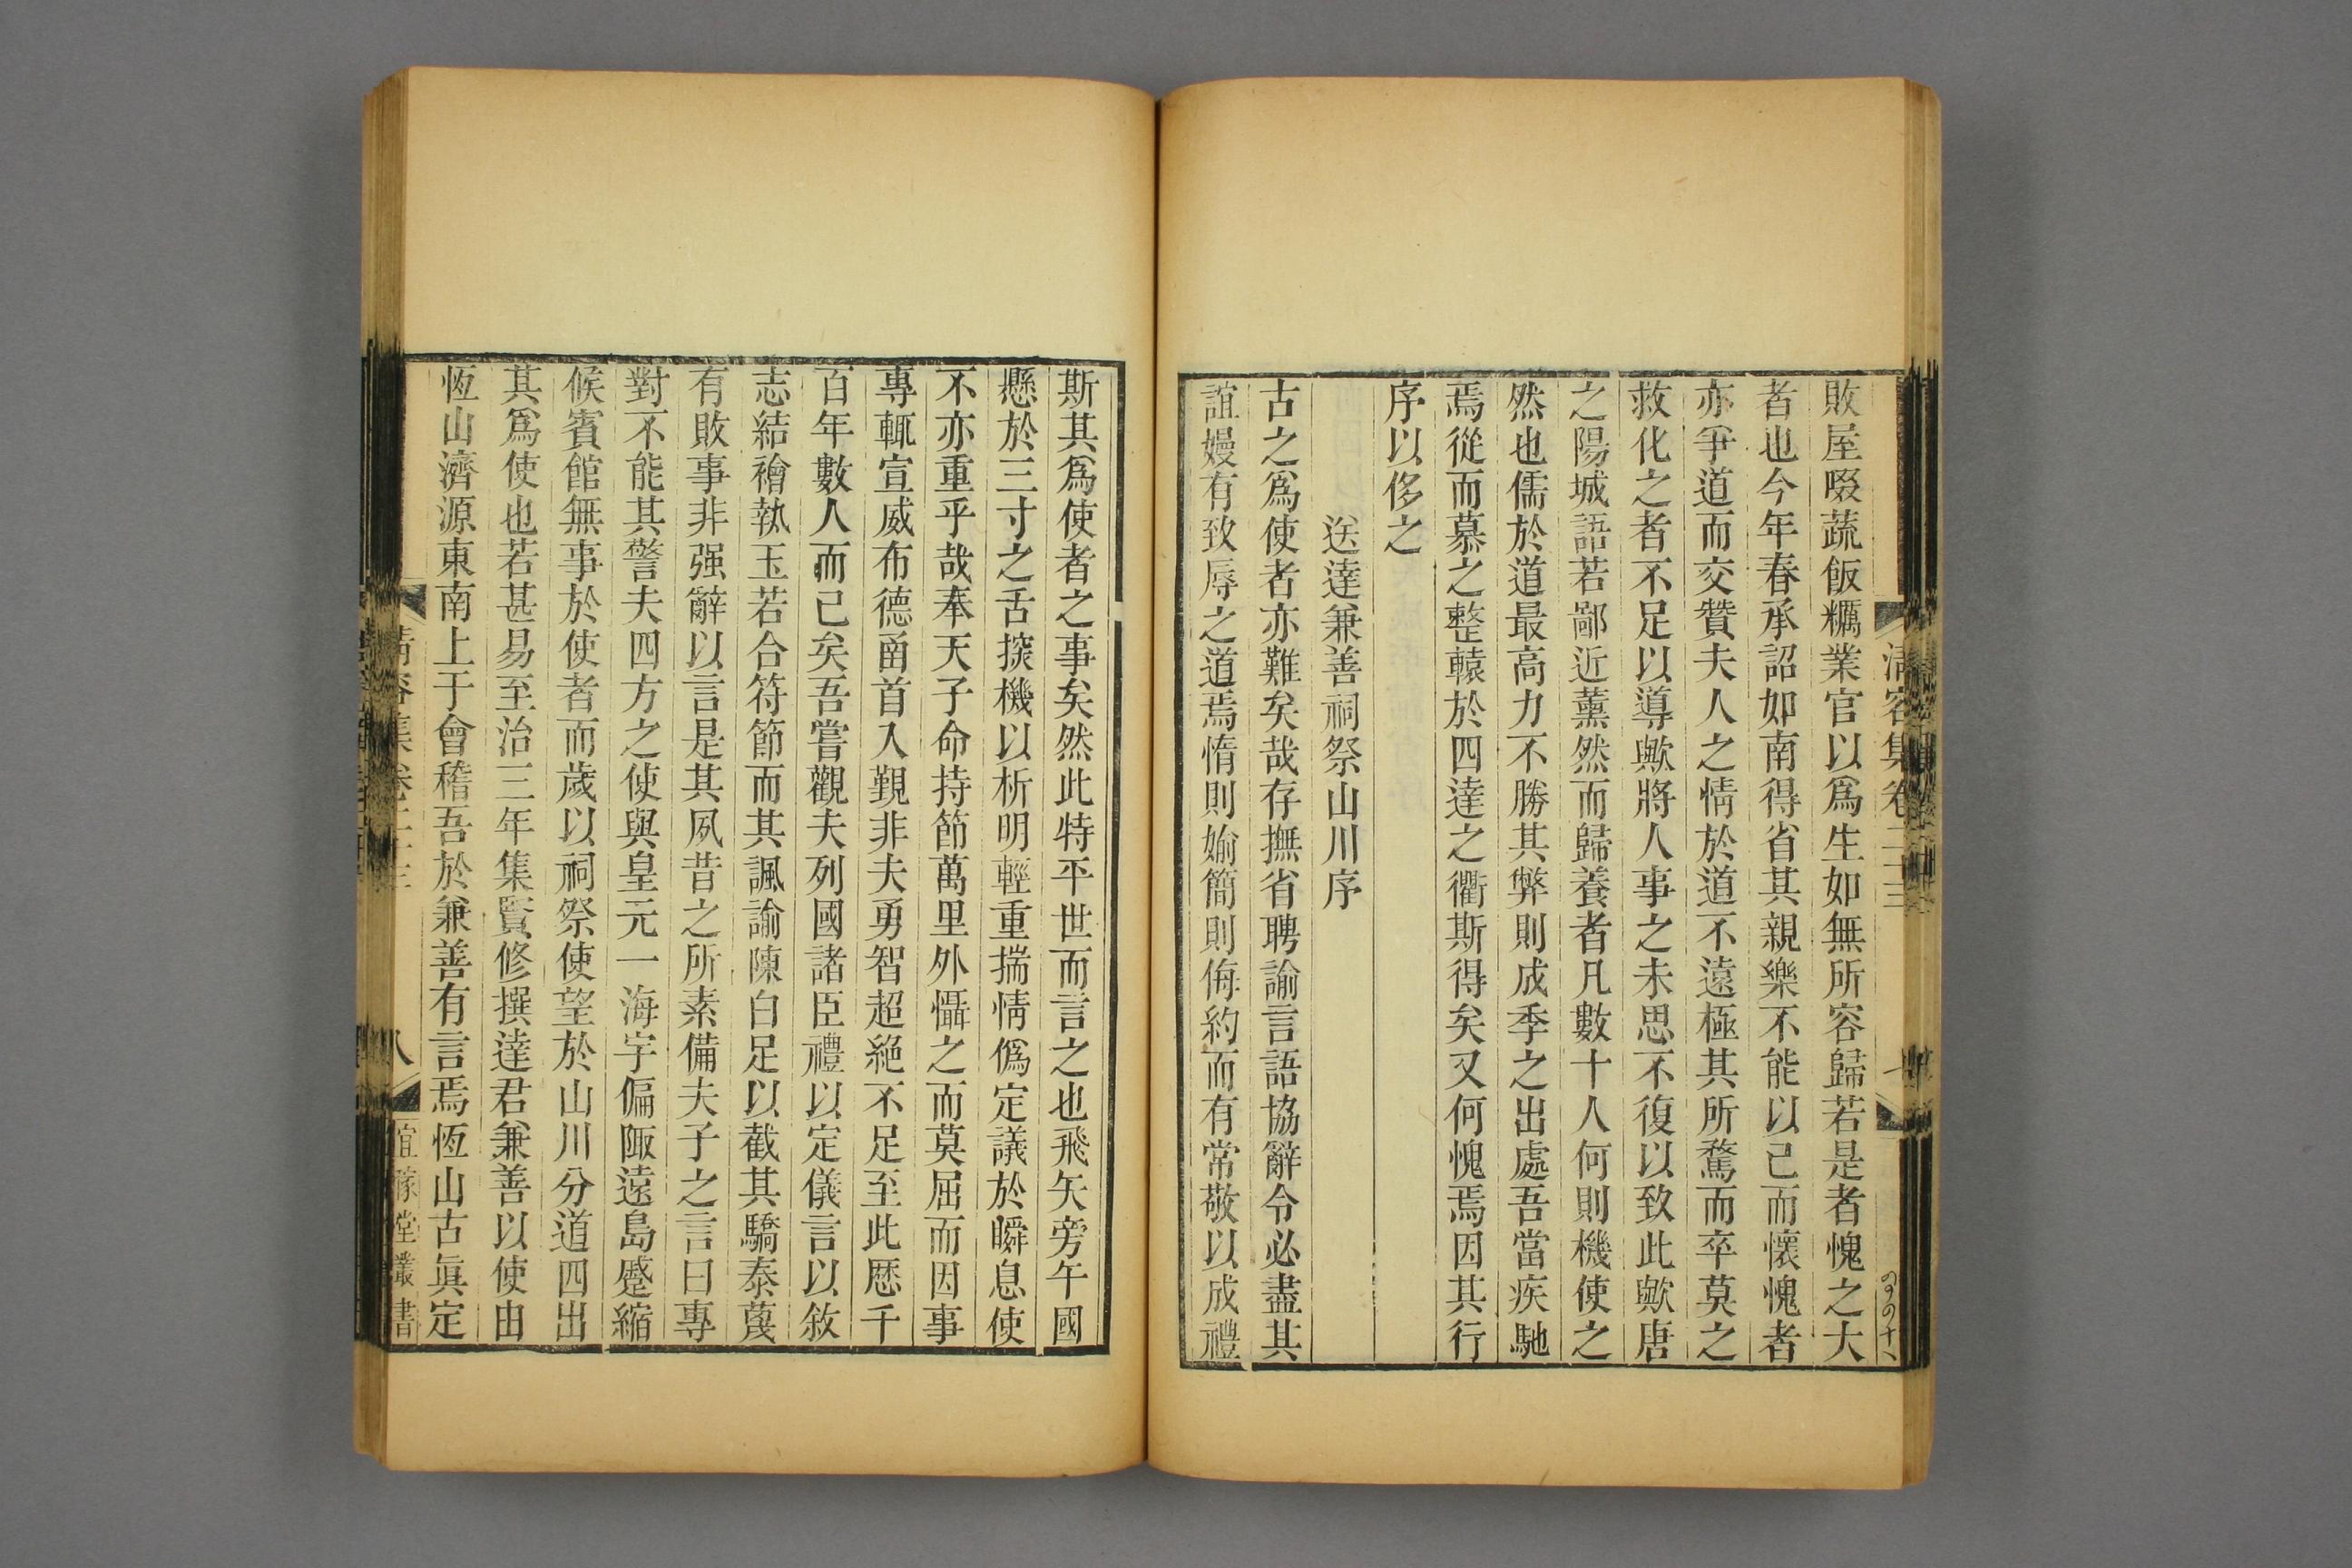 敗屋啜蔬飯糲業官以爲生如無所容歸若是者愧之大
者也今年春承詔如南得省其親樂不能以己而懷愧者
亦爭道而交贊夫人之情於道不遠極其所騖而卒莫之
救化之者不足以導歟將人事之未思不復以致此歟唐
之陽城語若鄙近薰然而歸養者凡數十人何則機使之
然也儒於道最高力不勝其弊則成季之出處吾當疾馳
焉從而慕之整轅於四達之衢斯得矣又何愧焉因其行
序以侈之
送達兼善祠祭山川序
古之爲使者亦難矣哉存撫省聘諭言語協辭令必盡其
誼嫚有致辱之道焉惰則媮簡則侮約而有常敬以成禮
斯其爲使者之事矣然此特平世而言之也飛矢旁午國
懸於三寸之舌揬機以析明輕重揣情僞定議於瞬息使
不亦重乎哉奉天子命持節萬里外懾之而莫屈而因事
專輒宣威布德酋首入覲非夫勇智超絶不足至此厯千
百年數人而已矣吾嘗觀夫列國諸臣禮以定儀言以敘
志結襘執玉若合符節而其諷諭陳白足以截其驕泰蔑
有敗事非强辭以言是其夙昔之所素備夫子之言曰專
對不能其警夫四方之使與皇元一海宇偏陬遠島蹙縮
候賓館無事於使者而歲以祠祭使望於山川分道四出
其爲使也若甚易至治三年集賢修撰達君兼善以使由
恆山濟源東南上于會稽吾於兼善有言焉恆山古眞定
清容集卷二十三
八
宜稼堂叢書